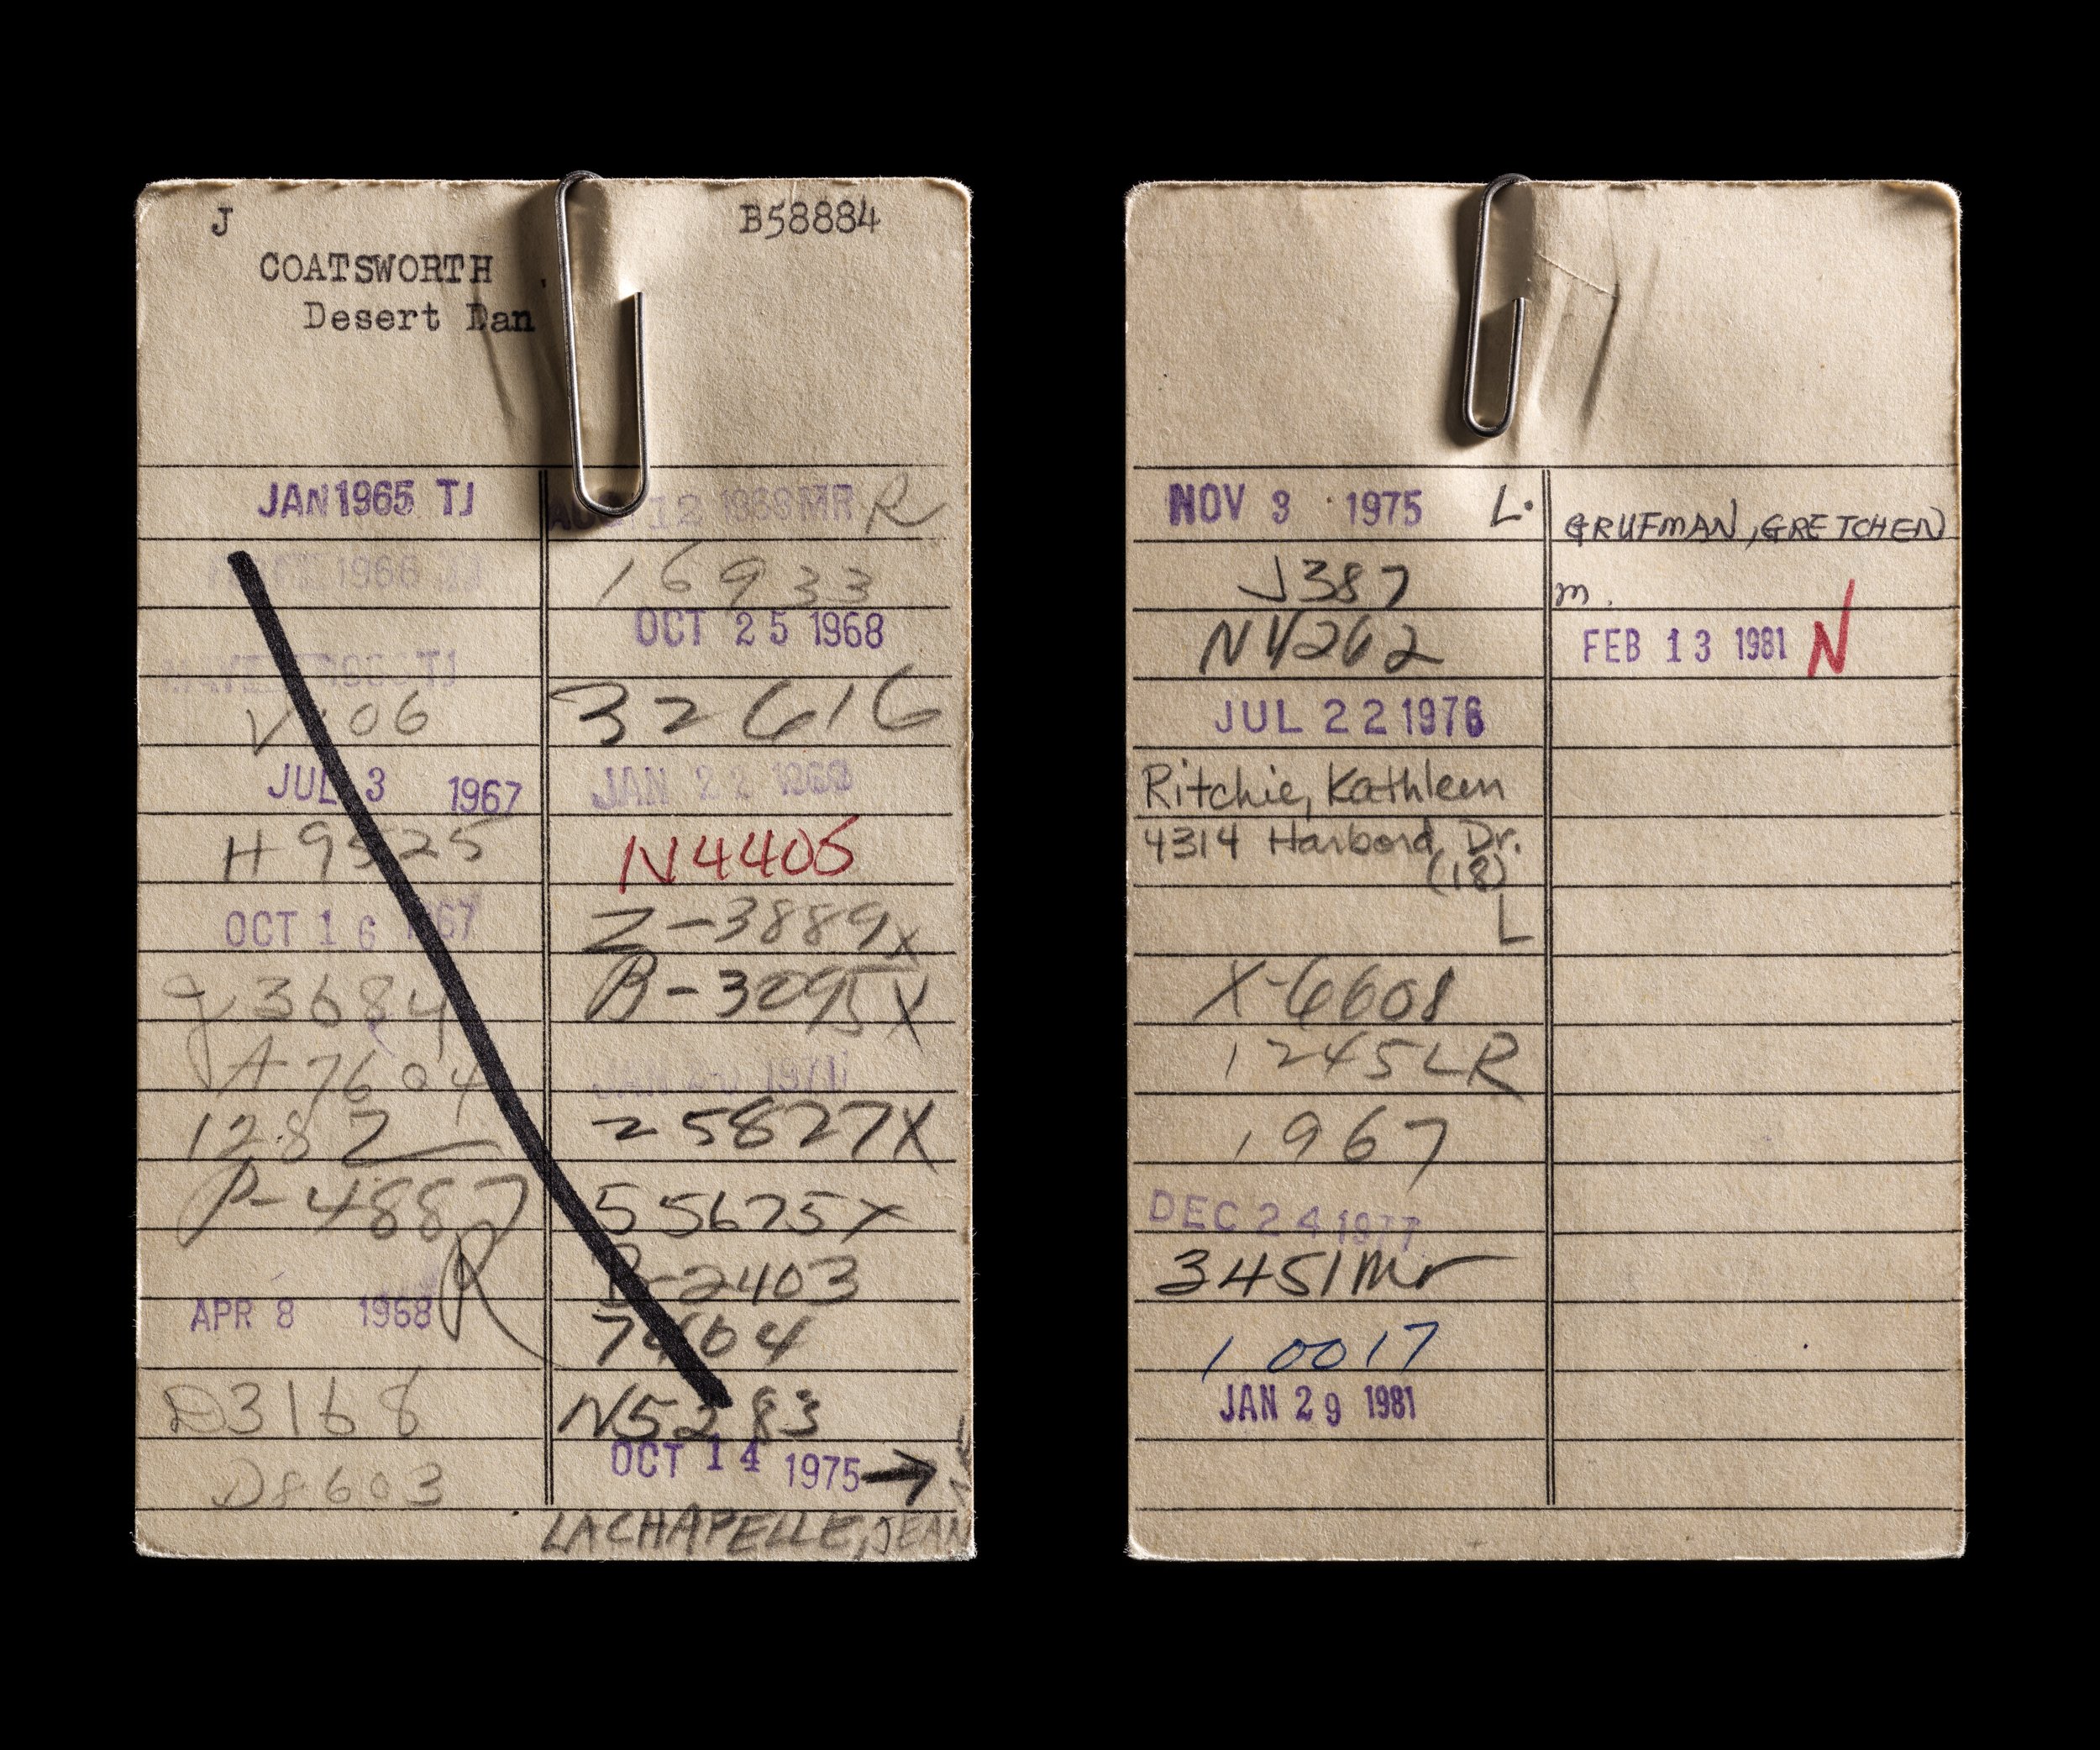 J
B58884
COATSWORTH
Desert Dan
JAN 1965 TJ
1966 TJ
TJ
06
JUL 3 1967
H 9525
OCT 16 1967
J3684
A7604
1287
P-4887
R
APR 8 1968
D3168
D8603
12 1968 MR R
16933
OCT 25 1968
32616
JAN 22 1969
N4405
Z-3889x
B-3095X
JAN 1971
25827X
55675x
B-2403
7464
N5283
OCT 14 1975 →
LACHAPELLE, JEAN
NOV 3 1975 L.
J387
N4262
JUL 22 1976
Ritchie, Kathleen
4314 Harbord Dr.
(18)
L
X-6608
1245LR
1967
DEC 24 1977
3451Mr
10017
JAN 29 1981
GRUFMAN, GRETCHEN
m.
FEB 13 1981 N